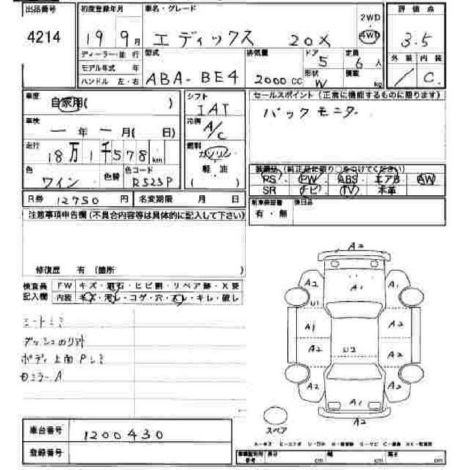 出品番号 初度登録年月 車名・グレード 評価点
4214 19 9月 エディックス 20X 2WD 4WD 3.5
ディーラー・並行 型式 排気量 ドア 定員 外装 内装
モデル年式 年 ABA-BE4 2000 CC 5 6人 C
ハンドル 左・右 形状 W 積載 kg
車歴 自家用( ) シフト IAT セールスポイント (正常に機能するものに限ります)
車検 一年一月( 日) 冷房 A/C バックモニター
走行 18万1千578 km 燃料 ガソリン
色 ワイン 色替 色コード R523P 軽油
装備品 (純正品に限り○をつけてください)
PS PW ABS エアB AW
SR ナビ TV 本革
R券 12750円 名変期限 月 日
有・無 後日品
注意事項申告欄 (不具合内容等は具体的に記入して下さい)
修復歴 有 (箇所 )
検査員記入欄 FW キズ・飛石・ヒビ割・リペア跡・X要
内装 キズ・汚レ・コゲ・穴・スレ・キレ・破レ
シートシミ
ボディ上面Pシミ
A2
A2 A1 A2
U1
A1 A2
A2 U2
A2 A1 A2
A1
スペア
車台番号 1200430
登録番号
長さ cm 幅 cm 高さ cm